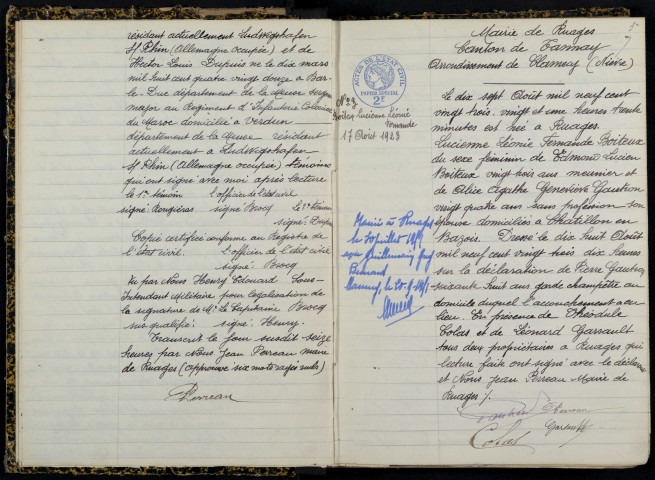 résidant actuellement Ludwigshafen
s/ Rhin (Allemagne occupée) et de
Hector Louis Dupuis né le dix mars
mil huit cent quatre vingt douze à Bar-
le-Duc département de la Meuse sergent
major au Régiment d'Infanterie Coloniale
du Maroc domicilié à Verdun
département de la Meuse résidant
actuellement à Ludwigshafen
s/ Rhin (Allemagne occupée) témoins
qui ont signé avec moi après lecture
le 1er témoin l'officier de l'état civil
signé: signé le 2e témoin
signé: Dupuis
Copie certifiée conforme au Registre de
l'état civil. l'officier de l'état civil
signé:
Vu par Nous Henry Edouard Sous-
Intendant Militaire pour légalisation de
la signature de Mr. Le Capitaine
sus qualifié: signé: Henry.
Transcrit le jour susdit seize
heures par Nous Jean Perreau maire
de Ruages (approuvé six mots rayés nuls)
Perreau
ACTES DE L'ETAT CIVIL
PAPIER SPECIAL
2F
No 3
Boiteux Lucienne Léonie
Fernande
17 Août 1923
Marié à Ruages
le juillet
avec Guillemain
Bernard
Mairie de Ruages
Canton de Tannay
Arrondissement de Clamecy (Nièvre)
Le dix sept Août mil neuf cent
vingt trois, vingt et une heures trente
minutes est née à Ruages.
Lucienne Léonie Fernande Boiteux
du sexe féminin de Edmond Lucien
Boiteux vingt trois ans meunier et
de Alice Agathe Geneviève Gautron
vingt quatre ans sans profession son
épouse domiciliés à Châtillon en
Bazois. Dressé le dix huit Août
mil neuf cent vingt trois dix heures
sur la déclaration de Pierre Gautron
soixante huit ans garde champêtre au
domicile duquel l'accouchement a eu
lieu. En présence de Théodule
Colas et de Léonard Garsault
tous deux propriétaires à Ruages qui
lecture faite ont signé avec le déclarant
et Nous Jean Perreau Maire de
Ruages /.
Gautron Perreau
Colas Garsault